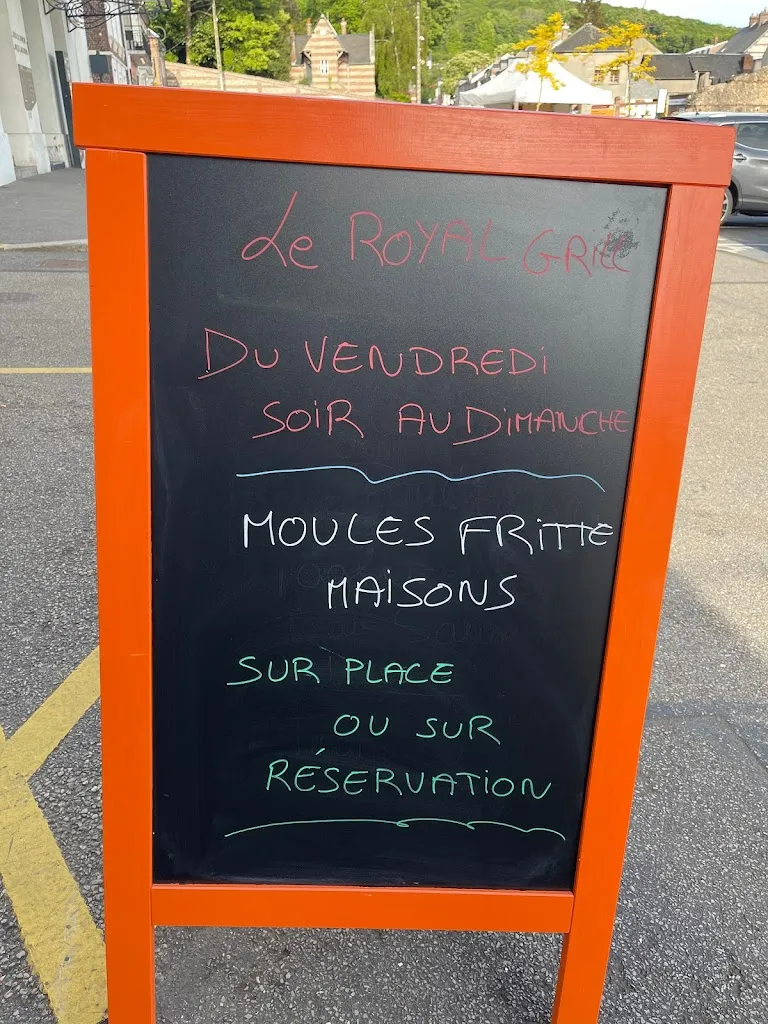 Le ROYAL GRILL
DU VENDREDI
SOIR AU DIMANCHE
MOULES FRITTE
MAISONS
SUR PLACE
OU SUR
RÉSERVATION